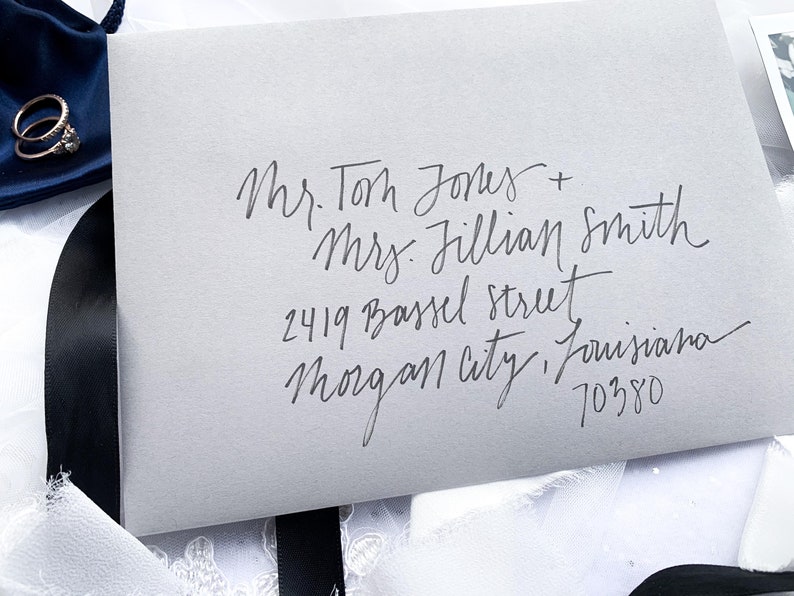 Mr. Tom Jones +
Mrs. Jillian Smith
2419 Bassel Street
Morgan City, Louisiana
70380